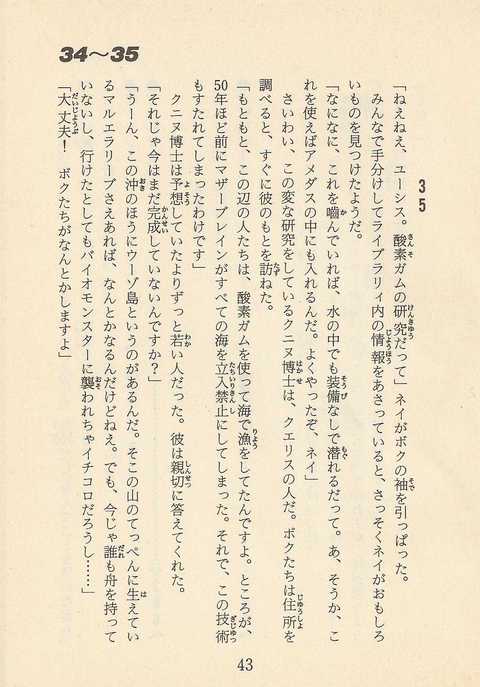 34〜35
35
「ねえねえ、ユーシス。酸素ガムの研究だって」ネイがボクの袖を引っぱった。
みんなで手分けしてライブラリィ内の情報をあさっていると、さっそくネイがおもしろ
いものを見つけたようだ。
「なになに、これを嚙んでいれば、水の中でも装備なしで潜れるだって。あ、そうか、こ
れを使えばアメダスの中にも入れるんだ。よくやったぞ、ネイ」
さいわい、この変な研究をしているクニヌ博士は、クエリスの人だ。ボクたちは住所を
調べると、すぐに彼のもとを訪ねた。
「もともと、この辺の人たちは、酸素ガムを使って海で漁をしてたんですよ。ところが、
50年ほど前にマザーブレインがすべての海を立入禁止にしてしまった。それで、この技術
もすたれてしまったわけです」
クニヌ博士は予想していたよりずっと若い人だった。彼は親切に答えてくれた。
「それじゃ今はまだ完成していないんですか？」
「うーん、この沖のほうにウーゾ島というのがあるんだ。そこの山のてっぺんに生えてい
るマルエラリーブさえあれば、なんとかなるんだけどねえ。でも、今じゃ誰も舟を持って
いないし、行けたとしてもバイオモンスターに襲われちゃイチコロだろうし……」
「大丈夫！　ボクたちがなんとかしますよ」
43